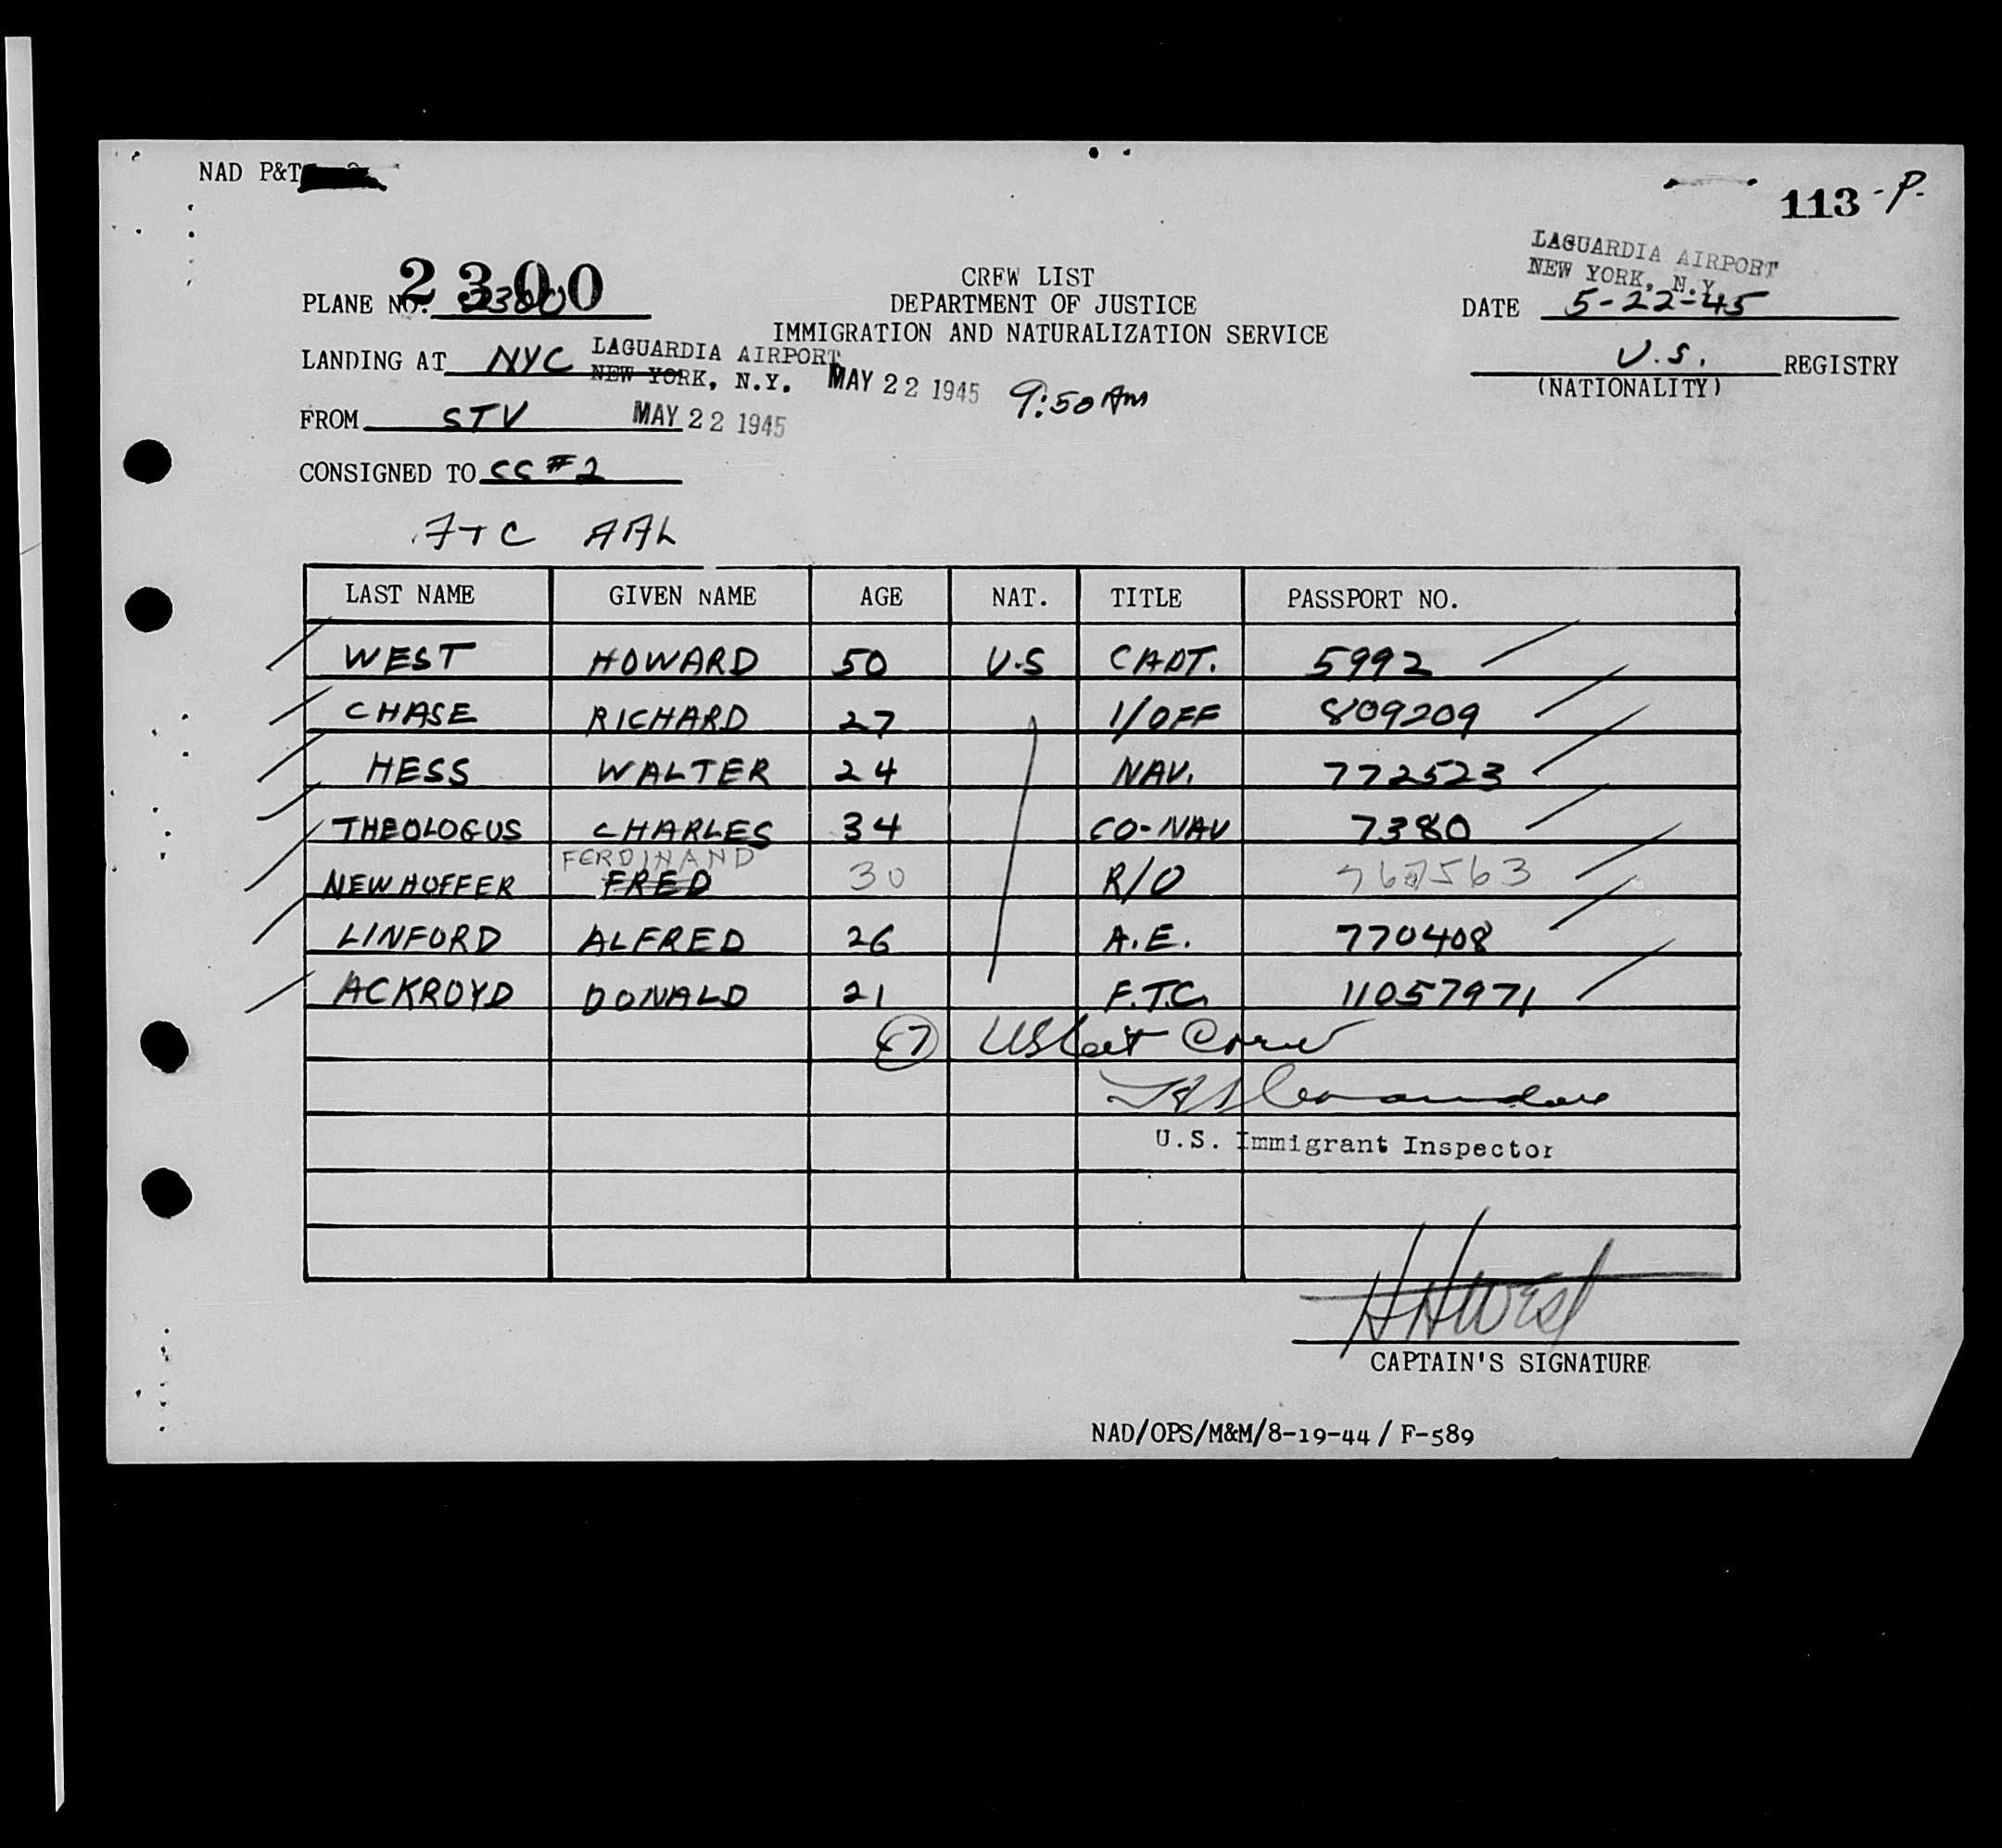 NAD P&T
113 -P.
LAGUARDIA AIRPORT
NEW YORK, N.Y.
2300
PLANE NO. 2300
CREW LIST
DEPARTMENT OF JUSTICE
IMMIGRATION AND NATURALIZATION SERVICE
DATE 5-22-45
U.S. REGISTRY
(NATIONALITY)
LANDING AT NYC LAGUARDIA AIRPORT
NEW YORK, N.Y. MAY 22 1945 9:50 Am
FROM STV MAY 22 1945
CONSIGNED TO CC#2
ATC AAL
LAST NAME GIVEN NAME AGE NAT. TITLE PASSPORT NO.
WEST HOWARD 50 U.S CAPT. 5992
CHASE RICHARD 27 1/OFF 809209
HESS WALTER 24 NAV. 772523
THEOLOGUS CHARLES 34 CO-NAV 7380
FERDINAND
NEWHOFFER FRED 30 R/O 767563
LINFORD ALFRED 26 A.E. 770408
ACKROYD DONALD 21 F.T.C. 11057971
7 US Cit Crew
U.S. Immigrant Inspector
H H West
CAPTAIN'S SIGNATURE
NAD/OPS/M&M/8-19-44/F-589